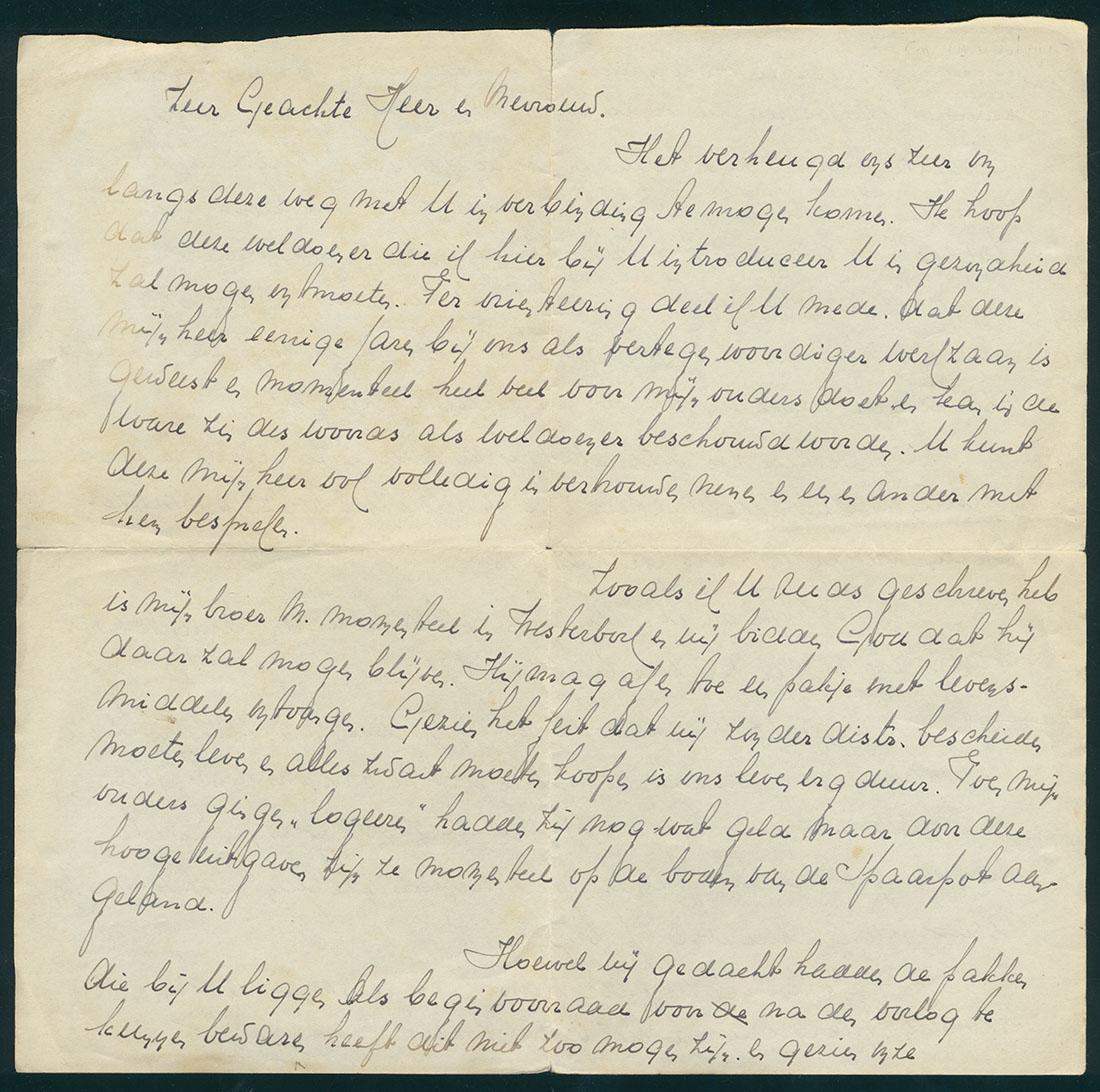 Zeer Geachte Heer en Mevrouw.
Het verheugd ons zeer om
langs deze weg met U in verbinding te mogen komen. Ik hoop
dat deze weldoener die ik hier bij U introduceer U in gezondheid
zal mogen ontmoeten. Ter orienteering deel ik U mede. dat deze
mijnheer eenige jaren bij ons als vertegenwoordiger werkzaam is
geweest en momenteel heel veel voor mijn ouders doet en kan in de
ware zin des woords als weldoener beschouwd worden. U kunt
deze mijnheer ook volledig in vertrouwen nemen en een en ander met
hem bespreken.
Zooals ik U reeds geschreven heb
is mijn broer M. momenteel in Westerbork en wij bidden God dat hij
daar zal mogen blijven. Hij mag af en toe een pakje met levens-
middelen ontvangen. Gezien het feit dat wij zonder distr. bescheiden
moeten leven en alles zwart moeten koopen is ons leven erg duur. Toen mijn
ouders gingen „logeeren" hadden zij nog wat geld maar door deze
hooge uitgaven zijn ze momenteel op de bodem van de spaarpot aan-
geland.
Hoewel wij gedacht hadden de pakken
die bij U liggen als begin voorraad voor de na den oorlog te
kunnen bewaren heeft dit niet zoo mogen zijn. en gezien onze